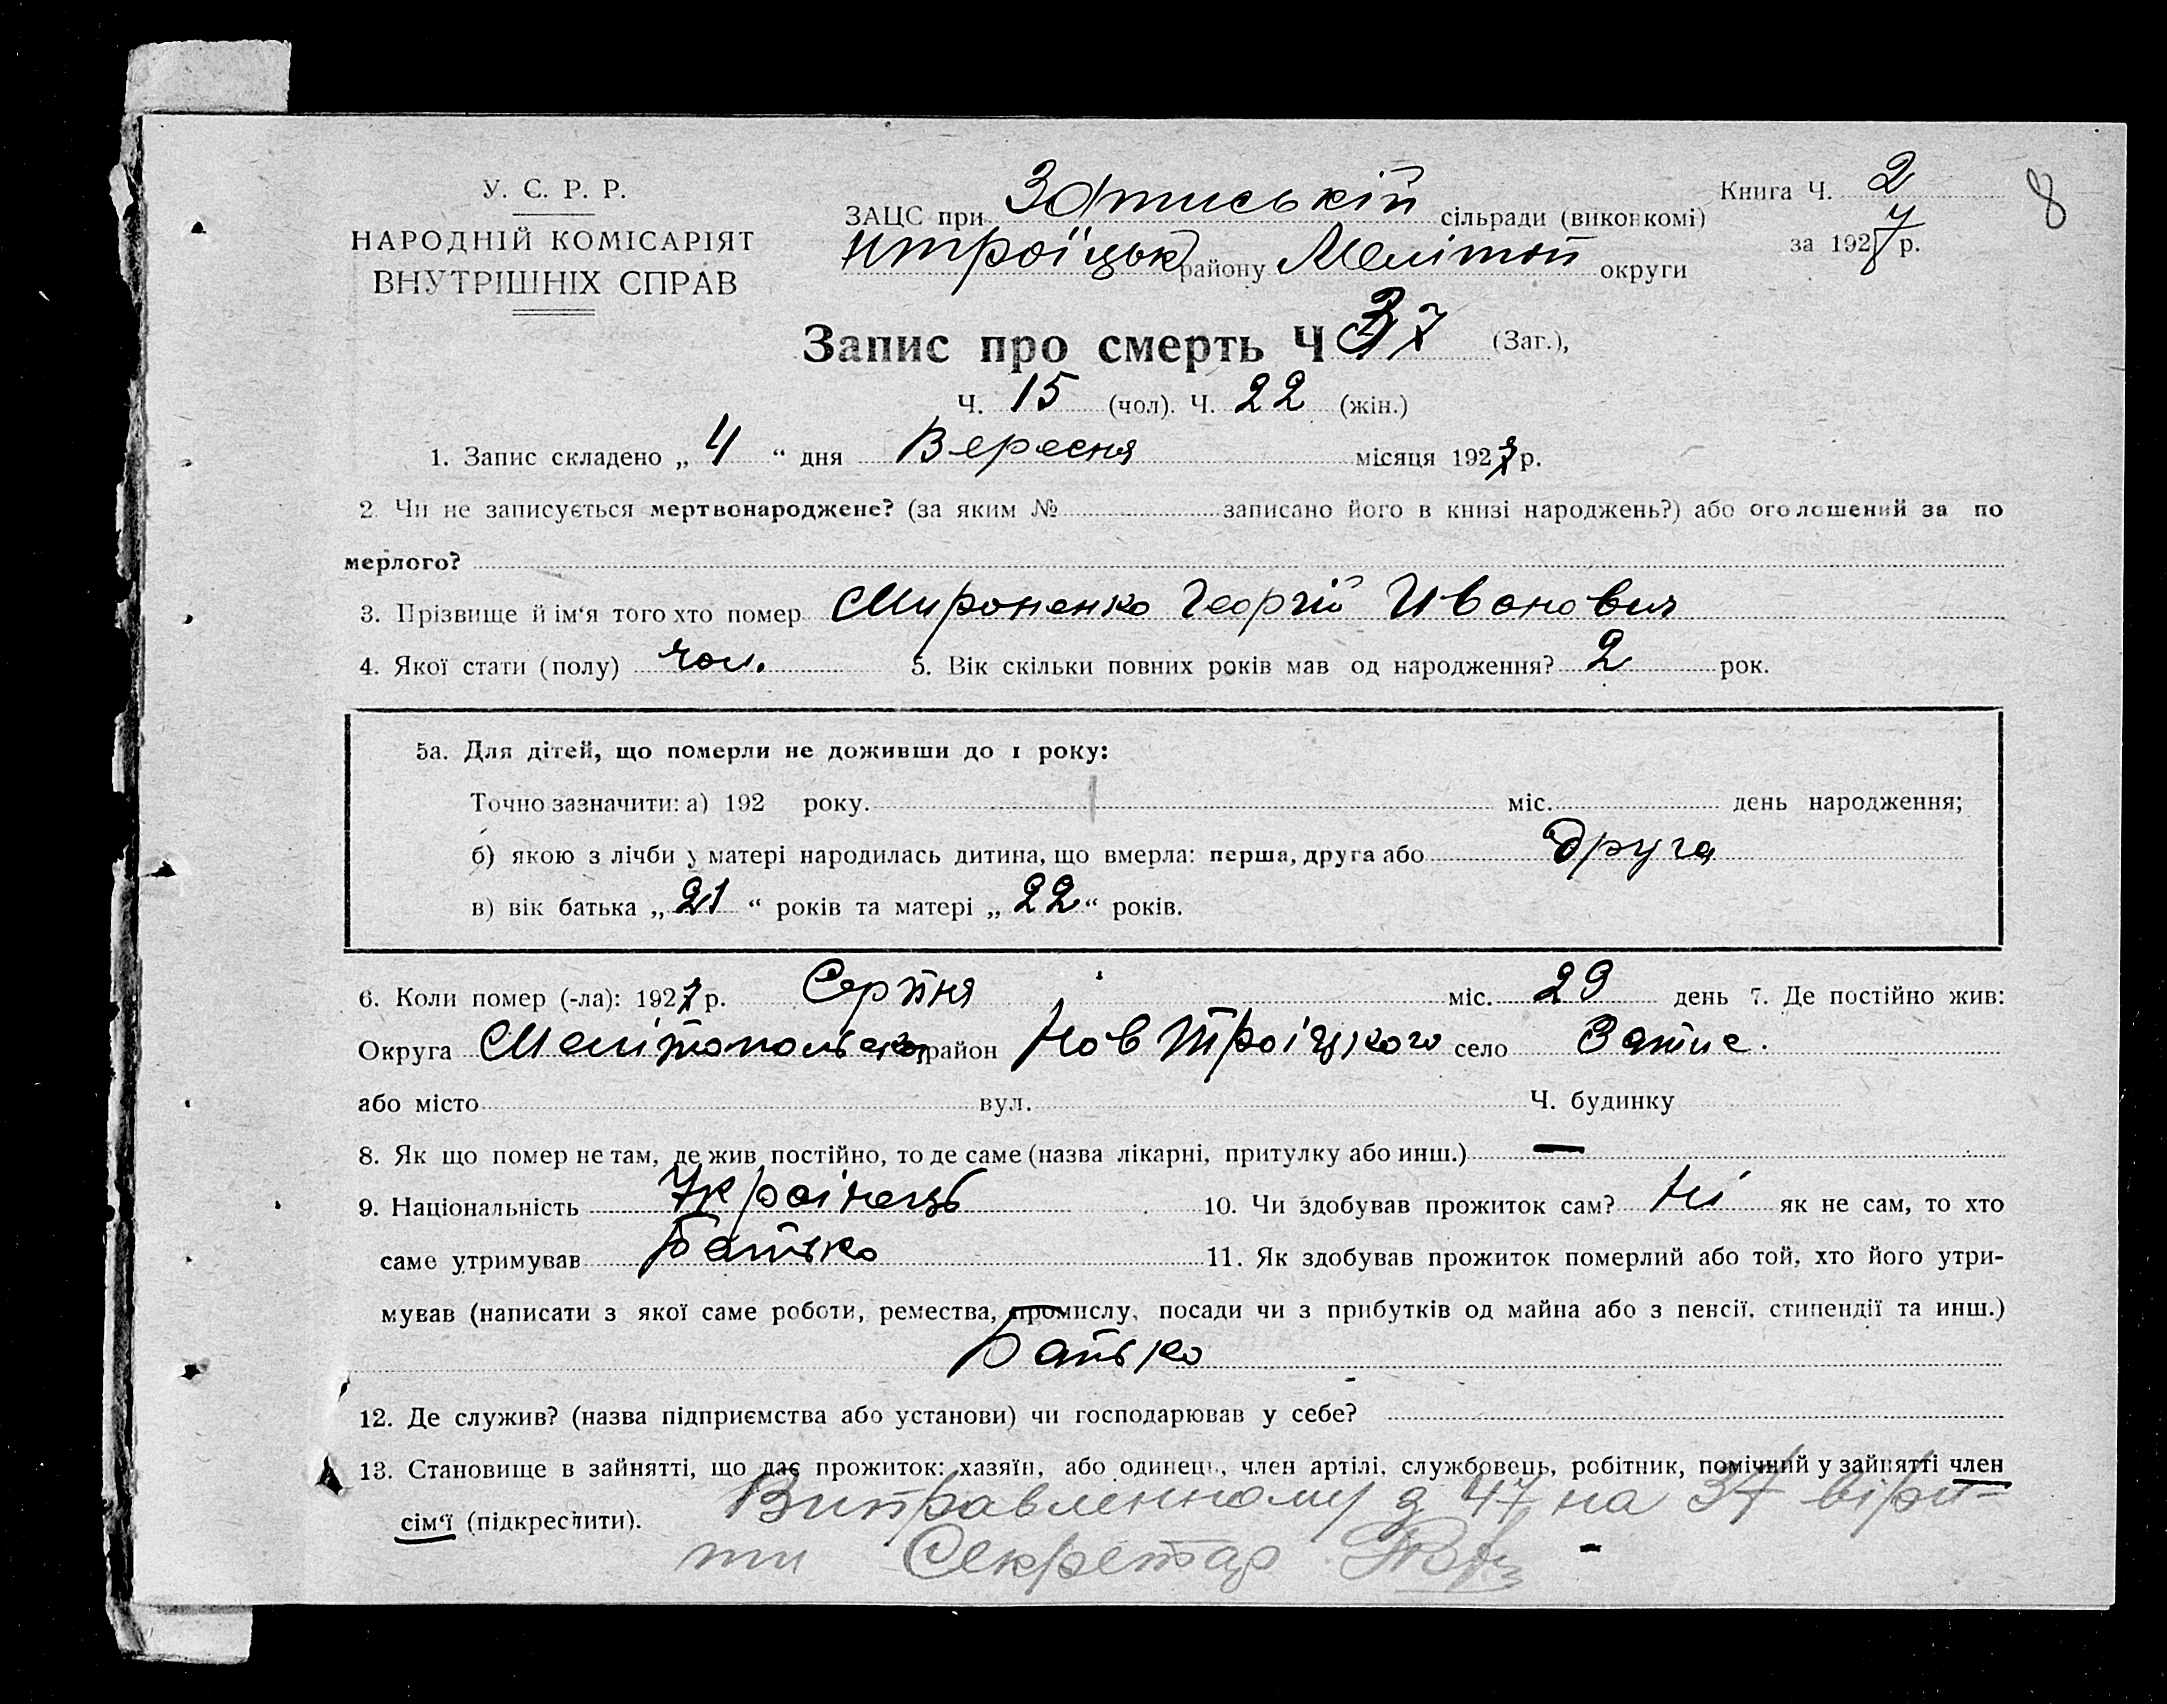 У. С. Р. Р.
НАРОДНІЙ КОМІСАРІЯТ
ВНУТРІШНІХ СПРАВ
Книга Ч. 2
8
за 1927 р.
ЗАЦС при Затиській сільради (виконкомі)
Нтроїцьк району Меліտոп округи
Запис про смерть Ч 37 (Заг.),
Ч. 15 (чол). Ч. 22 (жін.)
1. Запис складено „ 4 “ дня Вересня місяця 1927 р.
2. Чи не записується мертвонароджене? (за яким № записано його в книзі народжень?) або оголошений за по
мерлого?
3. Прізвище й ім‘я того хто помер Мироненко Георгій Иванович
4. Якої стати (полу) чол. 5. Вік скільки повних років мав од народження? 2 рок.
5а. Для дітей, що померли не доживши до 1 року:
Точно зазначити: а) 192 року. міс. день народження;
б) якою з лічби у матері народилась дитина, що вмерла: перша, друга або друга
в) вік батька „ 21 “ років та матері „ 22 “ років.
6. Коли помер (-ла): 1927 р. Серпня міс. 29 день 7. Де постійно жив:
Округа Мелітопольска район Нов Троіцкого село Затис.
або місто вул. Ч. будинку
8. Як що помер не там, де жив постійно, то де саме (назва лікарні, притулку або инш.) —
9. Національність Українець 10. Чи здобував прожиток сам? Ні як не сам, то хто
саме утримував Батько 11. Як здобував прожиток померлий або той, хто його утри-
мував (написати з якої саме роботи, ремества, промислу, посади чи з прибутків од майна або з пенсії, стипендії та инш.)
Батько
12. Де служив? (назва підприємства або установи) чи господарював у себе?
13. Становище в зайнятті, що дає прожиток: хазяїн, або одинець, член артілі, службовець, робітник, помічний у зайнятті член
сім‘ї (підкреслити).
Виправленному з 47 на 37 віри-
ти Секретар